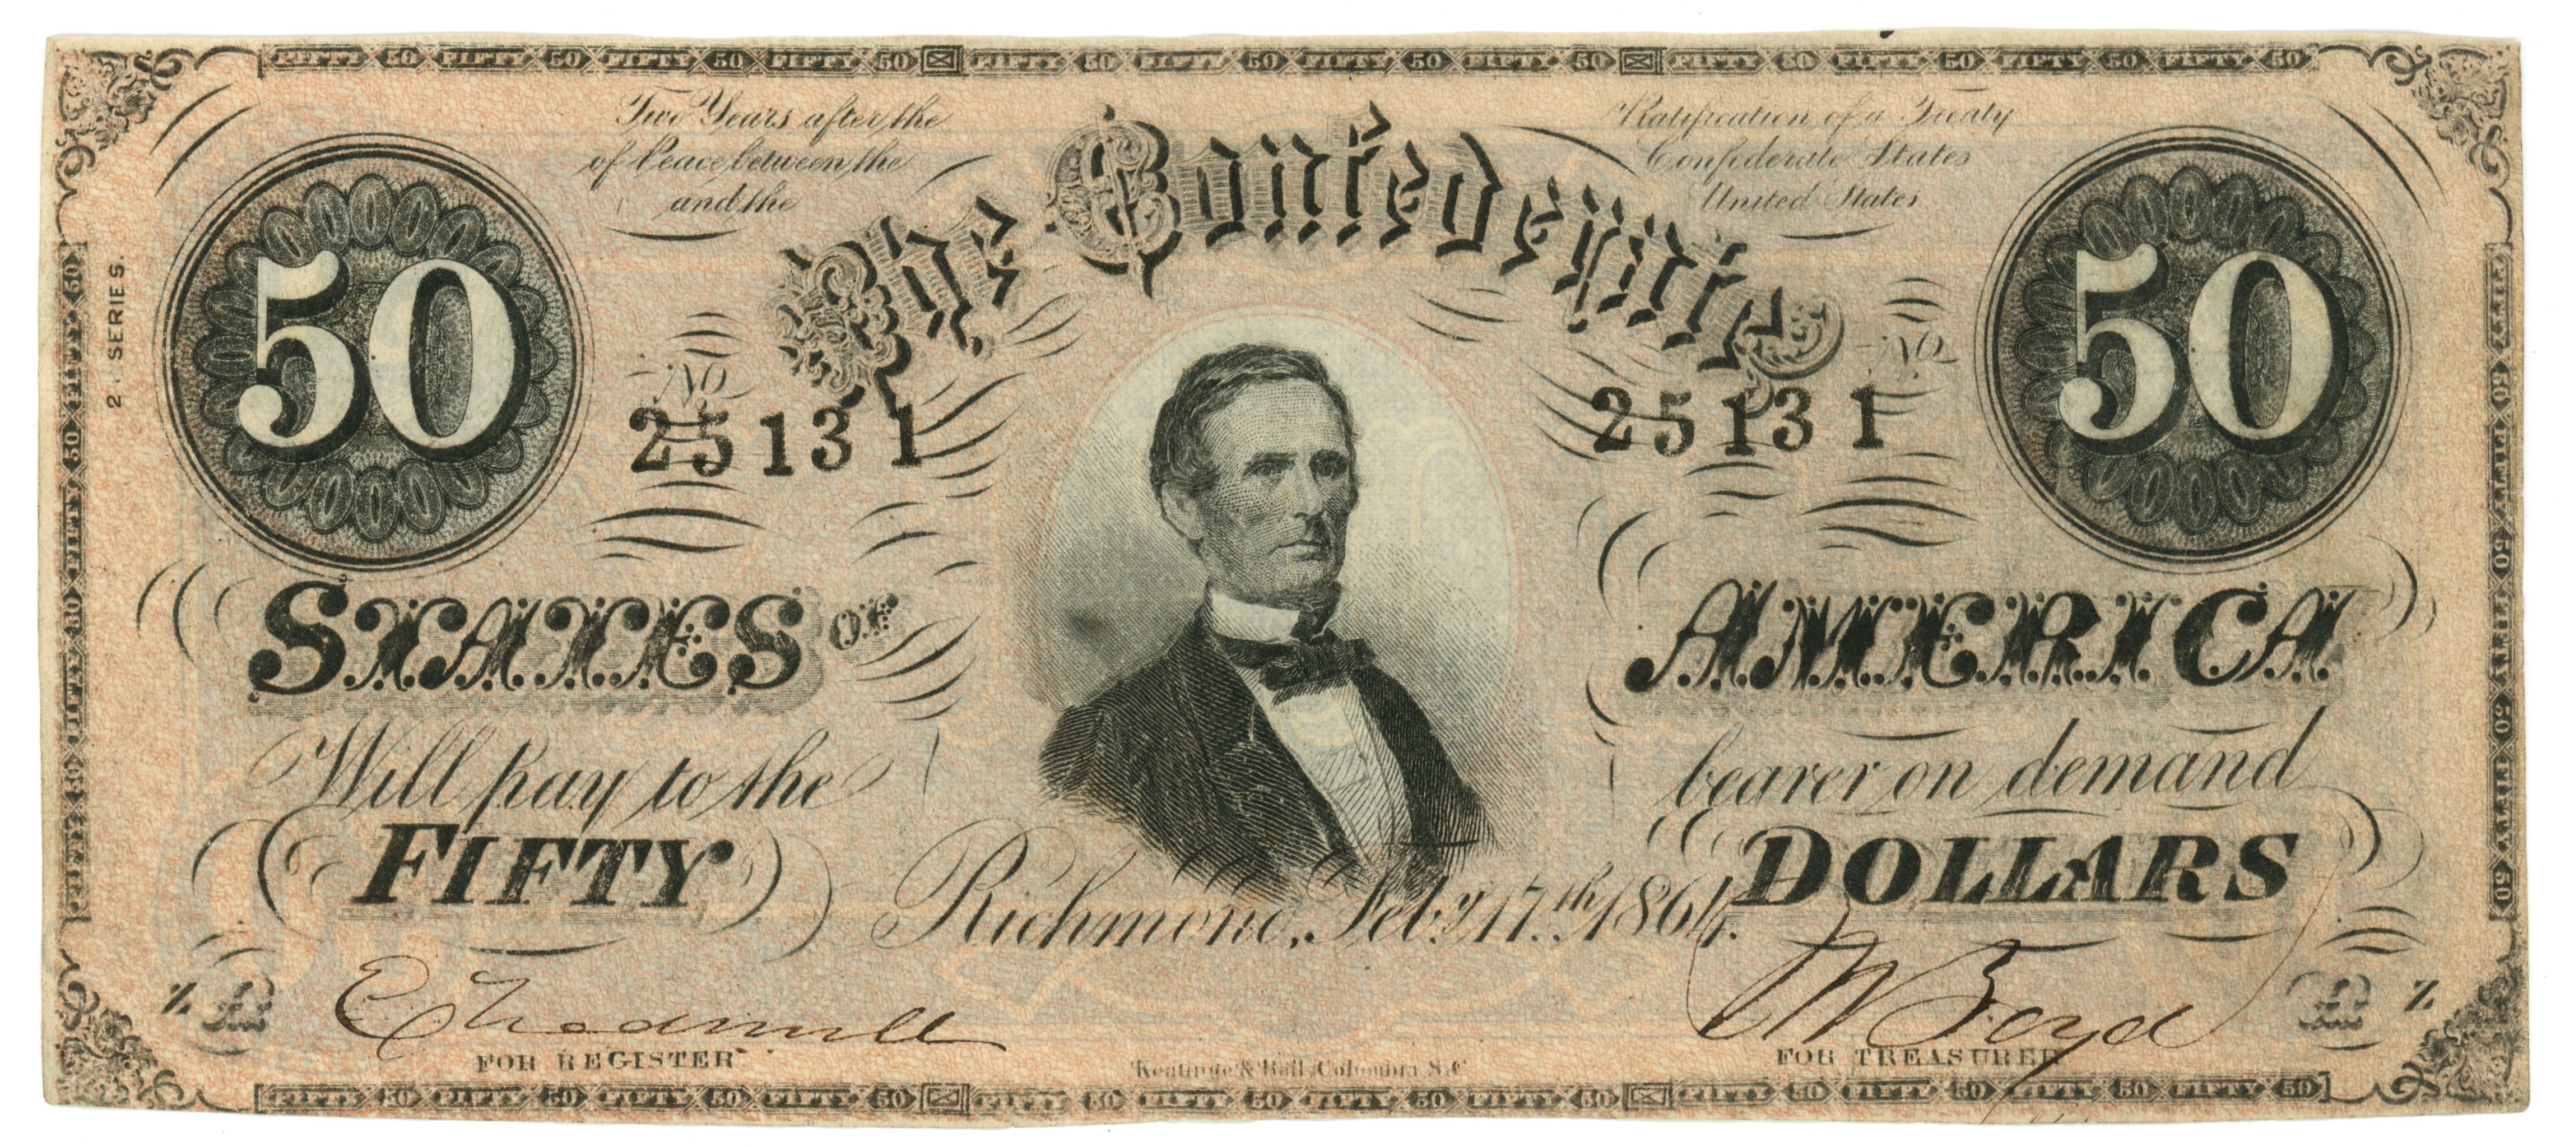 FIFTY 50 FIFTY 50 FIFTY 50 FIFTY 50 FIFTY 50 FIFTY 50 FIFTY 50 FIFTY 50 FIFTY 50 FIFTY 50 FIFTY 50 FIFTY 50
Two Years after the Ratification of a Treaty
of Peace between the Confederate States
and the United States
The Confederate
50
50
2. SERIES.
No
25131
No
25131
STATES OF AMERICA
Will pay to the bearer on demand
FIFTY DOLLARS
Richmond, Feby. 17th. 1864.
Z
Z
Boyd
FOR REGISTER
Keatinge & Ball, Columbia, S.C
FOR TREASURER
FIFTY 50 FIFTY 50 FIFTY 50 FIFTY 50 FIFTY 50 FIFTY 50 FIFTY 50 FIFTY 50 FIFTY 50 FIFTY 50 FIFTY 50 FIFTY 50